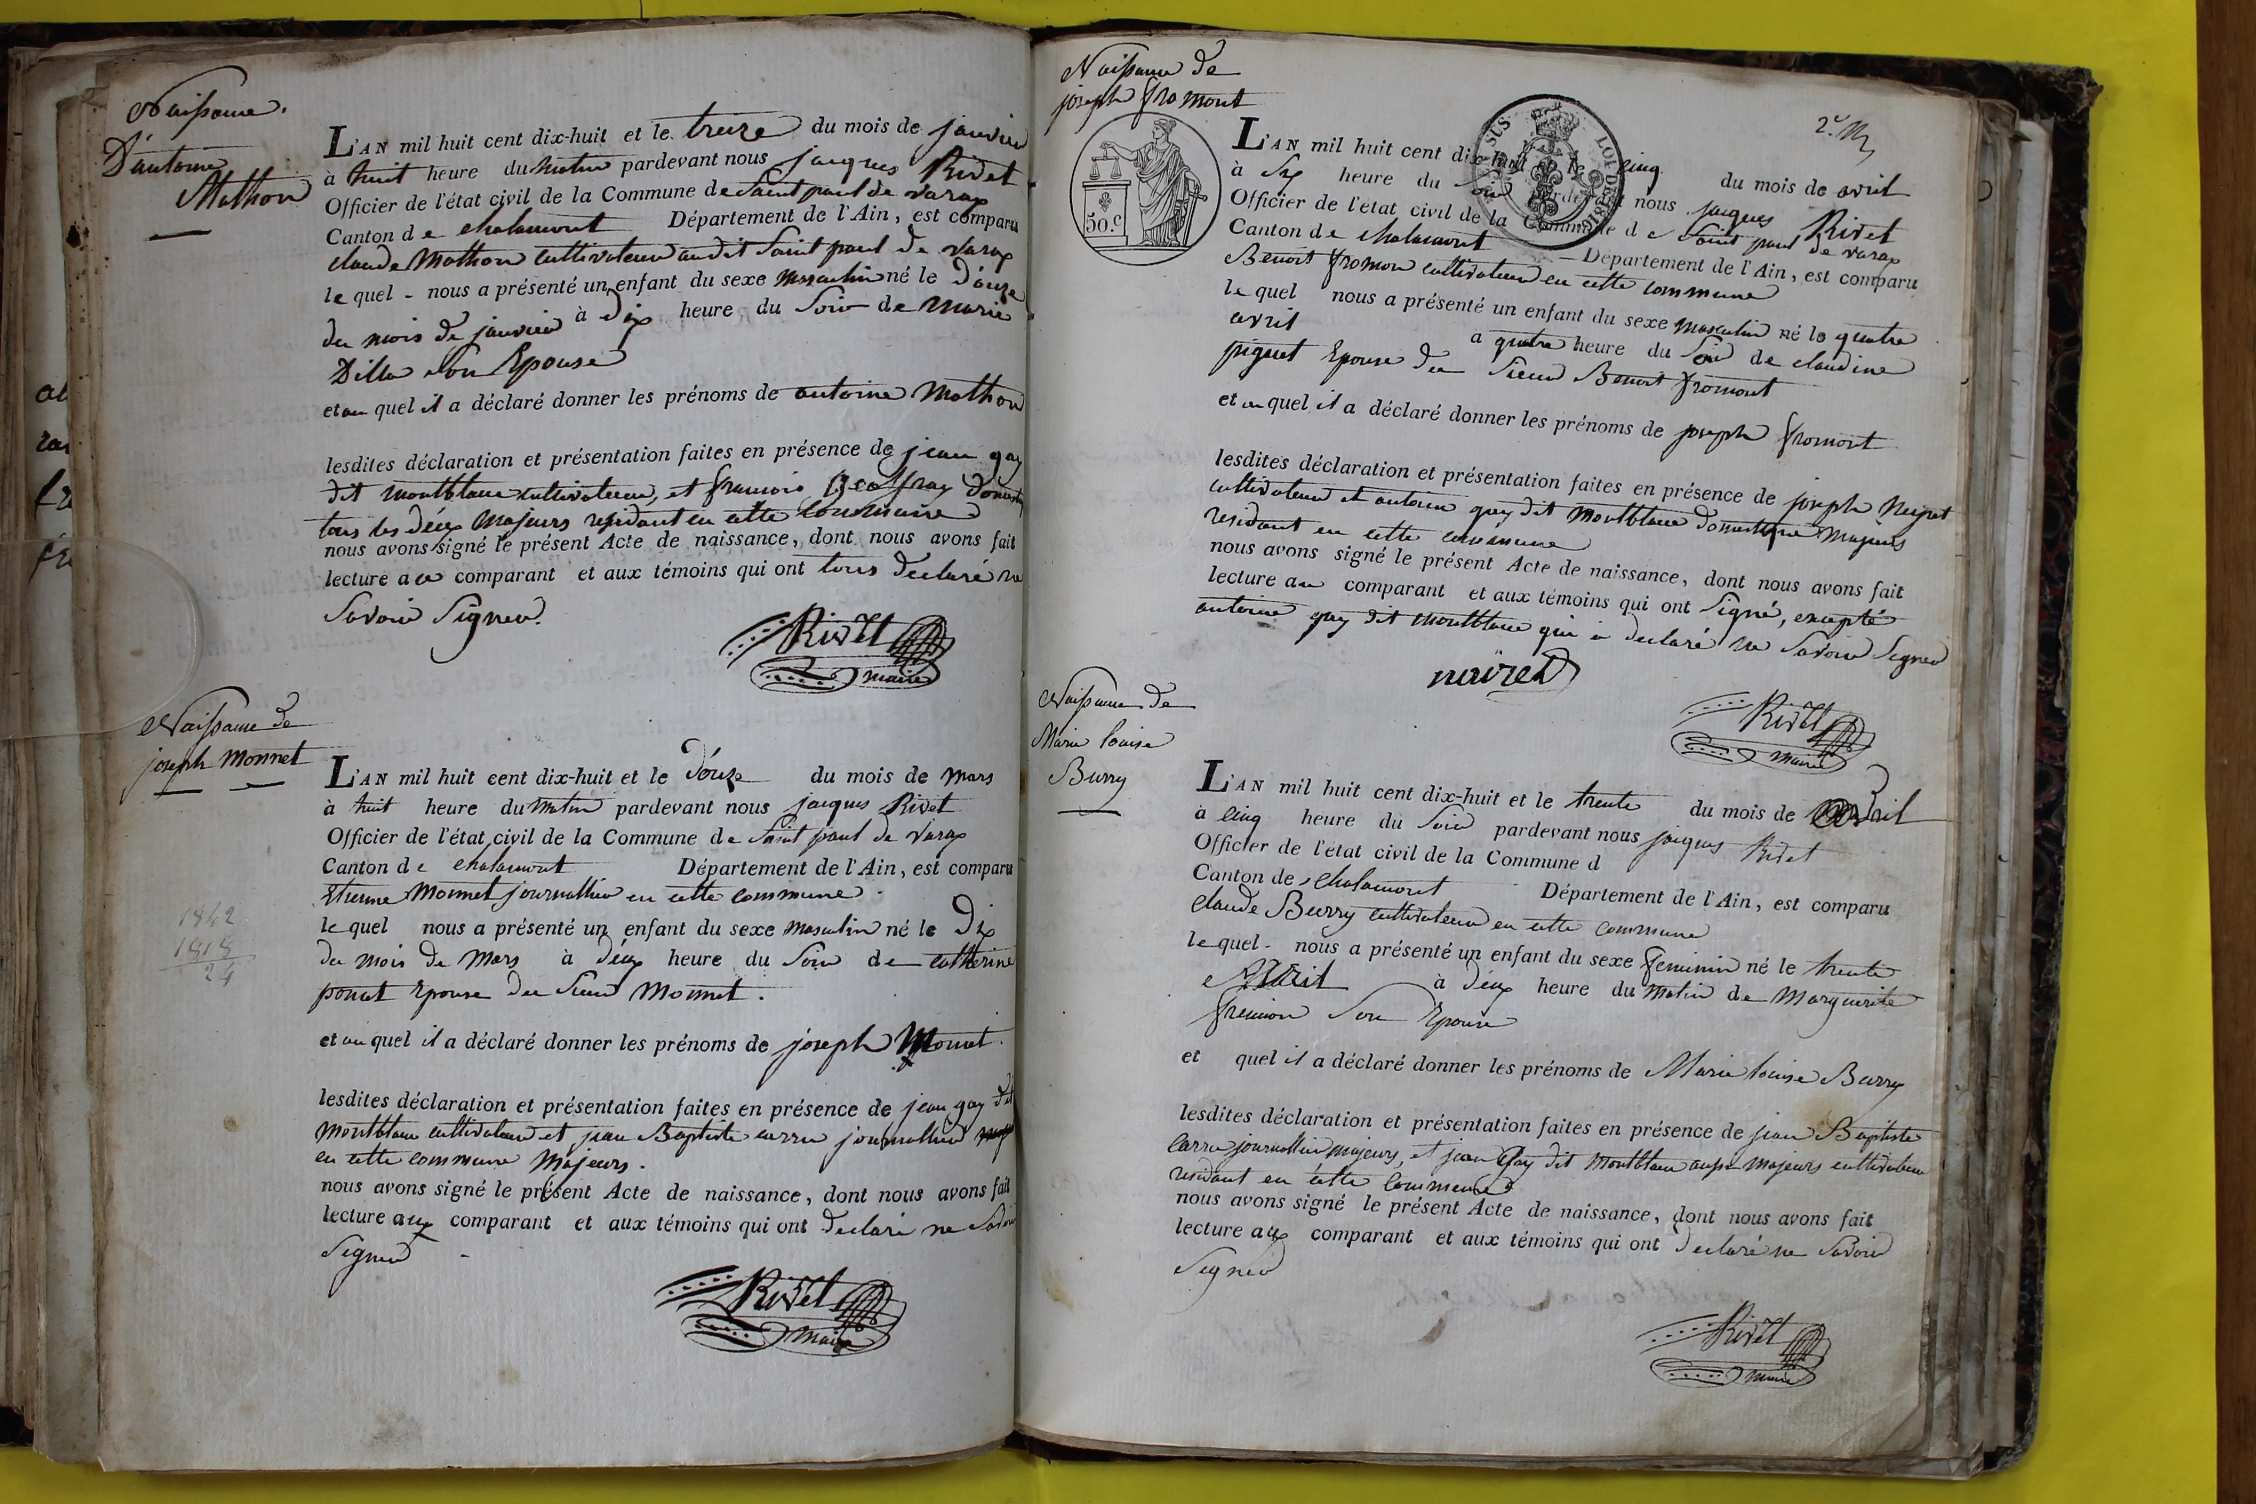 Naissance
D'antoine
Mathon
L'AN mil huit cent dix-huit et le treize du mois de janvier
à huit heure du matin pardevant nous jacques Rivet
Officier de l'état civil de la Commune de Saint paul de varax
Canton de chalamont Département de l'Ain, est comparu
claude Mathon cultivateur audit Saint paul de varax
le quel - nous a présenté un enfant du sexe masculin né le douze
du mois de janvier à dix heure du Soir de Marie
Dilla Son Epouse
et au quel il a déclaré donner les prénoms de antoine Mathon
lesdites déclaration et présentation faites en présence de jean gay
dit montblanc cultivateur, et francois
tous les déux Majeurs residant en cette Commune
nous avons signé le présent Acte de naissance, dont nous avons fait
lecture au comparant et aux témoins qui ont tous declaré ne
Savoir Signer.
Rivet
maire
Naissance de
joseph Monnet
1842
1818
24
L'AN mil huit cent dix-huit et le douze du mois de mars
à huit heure du Matin pardevant nous jacques Rivet
Officier de l'état civil de la Commune de Saint paul de varax
Canton de chalamont Département de l'Ain, est comparu
Etienne Monnet journallier en cette commune.
le quel nous a présenté un enfant du sexe masculin né le Dix
du mois de Mars à déux heure du Soir de catherine
poncet Epouse du Sieur Monnet.
et au quel il a déclaré donner les prénoms de joseph Monnet.
lesdites déclaration et présentation faites en présence de jean gay dit
Montblanc cultivateur et jean Baptiste carru journallier
en cette commune Majeurs.
nous avons signé le présent Acte de naissance, dont nous avons fait
lecture aux comparant et aux témoins qui ont declaré ne Savoir
Signer
Rivet
maire
Naissance de
joseph fromont
50.c
LOI DE 1816
2e
L'AN mil huit cent dix-huit et le cinq du mois de avril
à Six heure du Soir pardevant nous jacques Rivet
Officier de l'état civil de la Commune de Saint paul de varax
Canton de chalamont Département de l'Ain, est comparu
Benoit fromon cultivateur en cette commune
le quel nous a présenté un enfant du sexe masculin né le quatre
avril à quatre heure du Soir de claudine
piguet Epouse du Sieur Benoit fromont
et au quel il a déclaré donner les prénoms de joseph fromont
lesdites déclaration et présentation faites en présence de joseph
cultivateur et antoine gay dit Montblanc domestique Majeurs
residant en cette commune
nous avons signé le présent Acte de naissance, dont nous avons fait
lecture au comparant et aux témoins qui ont Signé, excepté
antoine gay dit Montblanc qui a declaré ne Savoir Signer
Rivet
maire
Naissance de
Marie louise
Burry
L'AN mil huit cent dix-huit et le trente du mois de avril
à cinq heure du Soir pardevant nous jacques Rivet
Officier de l'état civil de la Commune d
Canton de chalamont Département de l'Ain, est comparu
claude Burry cultivateur en cette commune
le quel - nous a présenté un enfant du sexe feminin né le trente
avril à déux heure du Matin de Marguerite
Son Epouse
et quel il a déclaré donner les prénoms de Marie louise Burry
lesdites déclaration et présentation faites en présence de jean Baptiste
Carru journallier majeurs, et jean Gay dit Montblanc aussi Majeurs cultivateur
residant en cette Commune
nous avons signé le présent Acte de naissance, dont nous avons fait
lecture aux comparant et aux témoins qui ont declaré ne Savoir
Signer
Rivet
maire